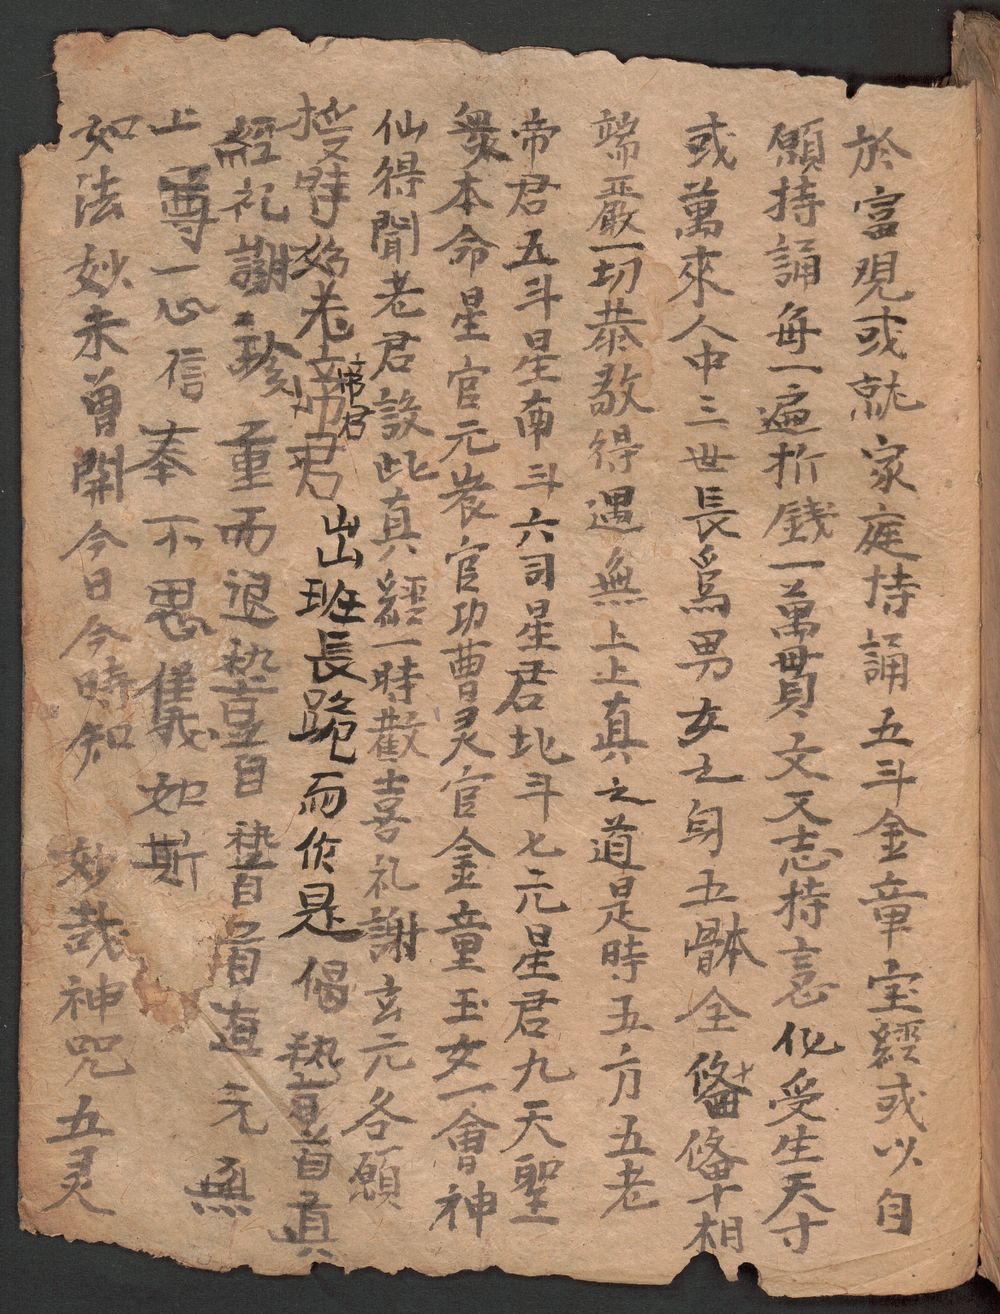 於富觀或就家庭持誦五斗金章宝經或以自
願持誦每一遍折錢一萬貫文又志持意化受生天寸
或萬來人中三世長爲男女之身五骵全俻俻十相
端嚴一切恭敬得遇無上上真之道是時五方五老
帝君五斗星南斗六司星君北斗七元星君九天聖
衆本命星官元辰官功曹灵官金童玉女一會神
仙得聞老君設此真經一時歡喜礼謝玄元各願
帝君
老帝君出班長跪而作是偈
經礼謝珍重而退
上尊一心信奉不思儀如斯
如法妙未曽聞今日今時知妙哉神咒五灵